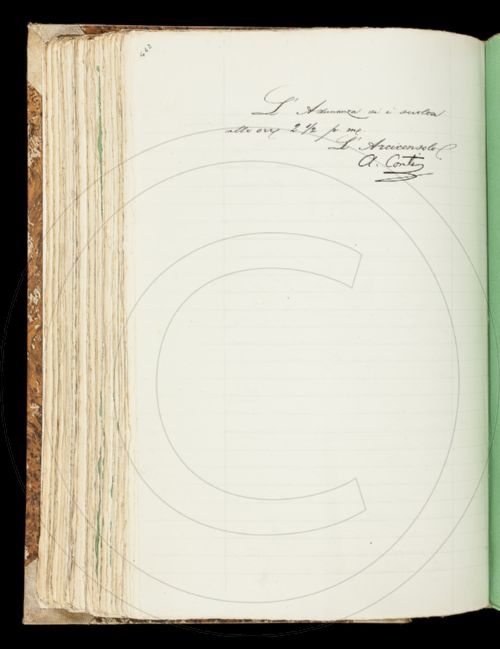 L'Adunanza si è sciolta
alle ore 2 1/2 p. m.
L'Arciconsolo
A. Conti